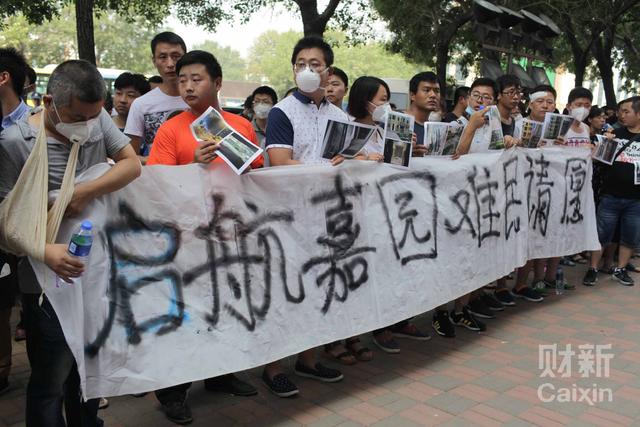 启航嘉园难民请愿
财新
Caixin